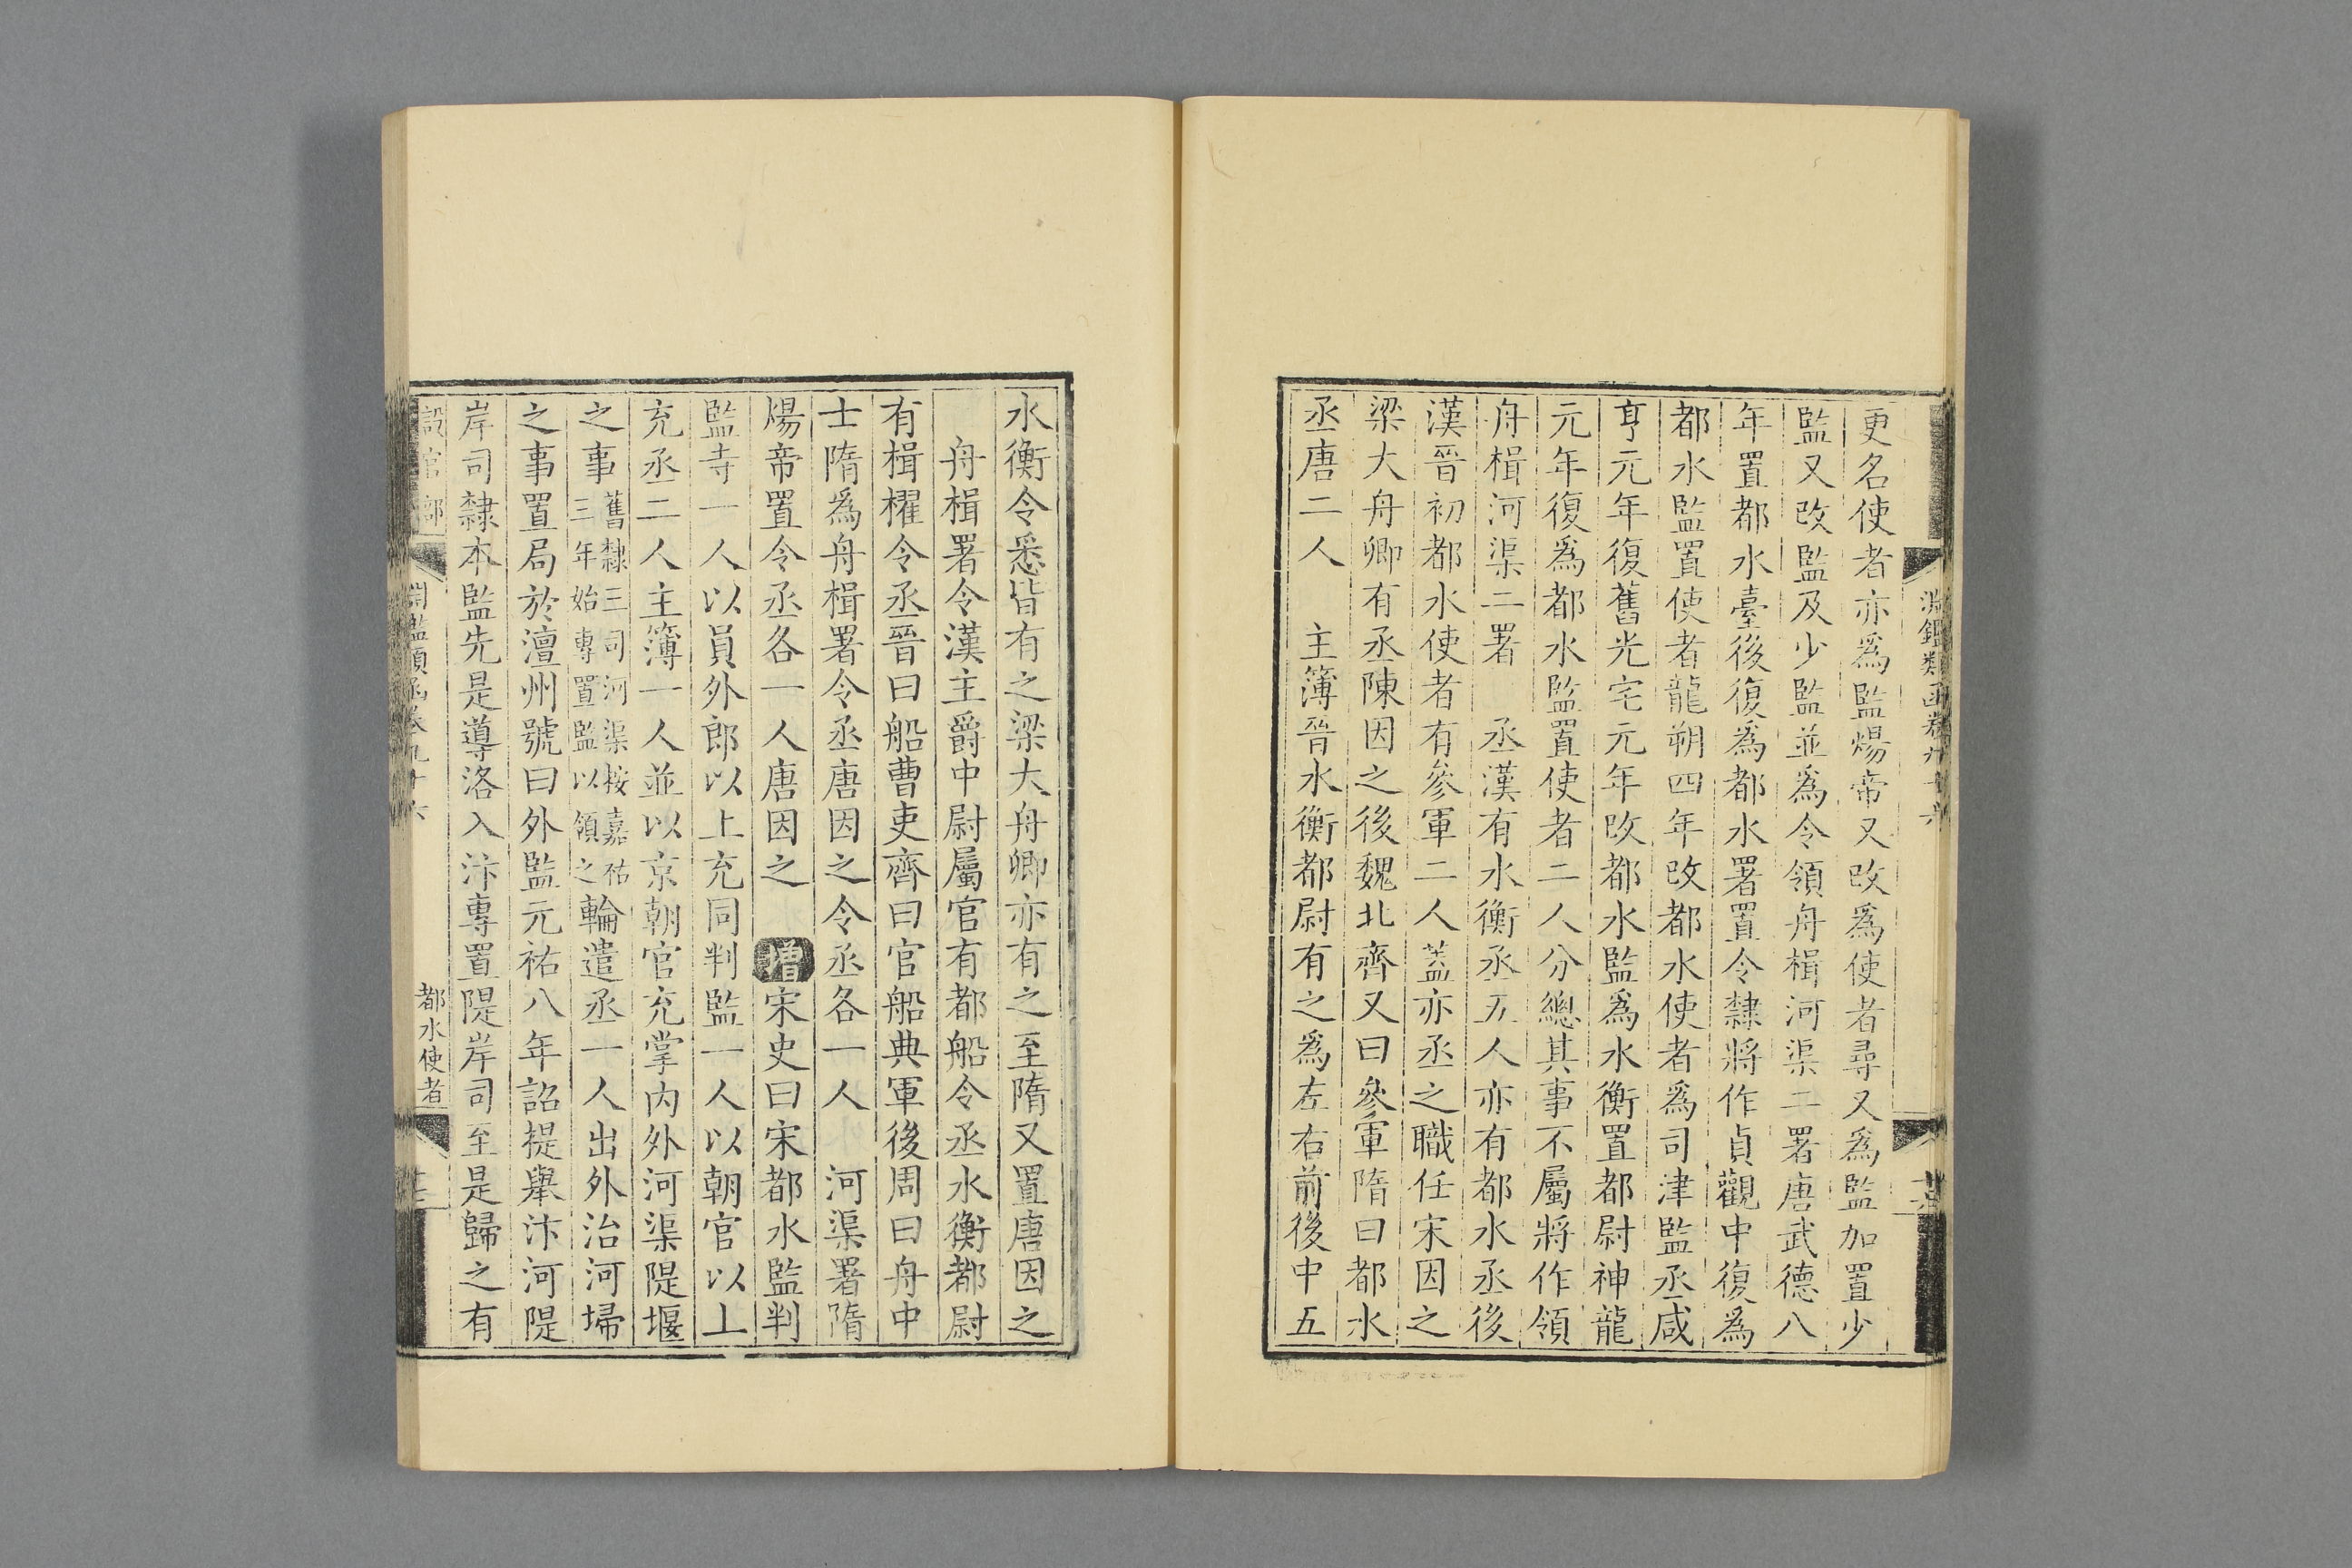 淵鑑類函卷九十六
更名使者亦爲監煬帝又改爲使者尋又爲監加置少
監又改監及少監並爲令領舟楫河渠二署唐武德八
年置都水臺後復爲都水署置令隸將作貞觀中復爲
都水監置使者龍朔四年改都水使者爲司津監丞咸
亨元年復舊光宅元年改都水監爲水衡置都尉神龍
元年復爲都水監置使者二人分總其事不屬將作領
舟楫河渠二署　丞漢有水衡丞五人亦有都水丞後
漢晉初都水使者有參軍二人蓋亦丞之職任宋因之
梁大舟卿有丞陳因之後魏北齊又曰參軍隋曰都水
丞唐二人　主簿晉水衡都尉有之爲左右前後中五
水衡令悉皆有之梁大舟卿亦有之至隋又置唐因之
舟楫署令漢主爵中尉屬官有都船令丞水衡都尉
有楫櫂令丞晉曰船曹吏齊曰官船典軍後周曰舟中
士隋爲舟楫署令丞唐因之令丞各一人　河渠署隋
煬帝置令丞各一人唐因之　增宋史曰宋都水監判
監寺一人以員外郎以上充同判監一人以朝官以上
充丞二人主簿一人並以京朝官充掌內外河渠隄堰
之事舊隸三司河渠按嘉祐三年始專置監以領之輪遣丞一人出外治河埽
之事置局於澶州號曰外監元祐八年詔提舉汴河隄
岸司隸本監先是導洛入汴專置隄岸司至是歸之有
設官部　淵鑑類函卷九十六　都水使者